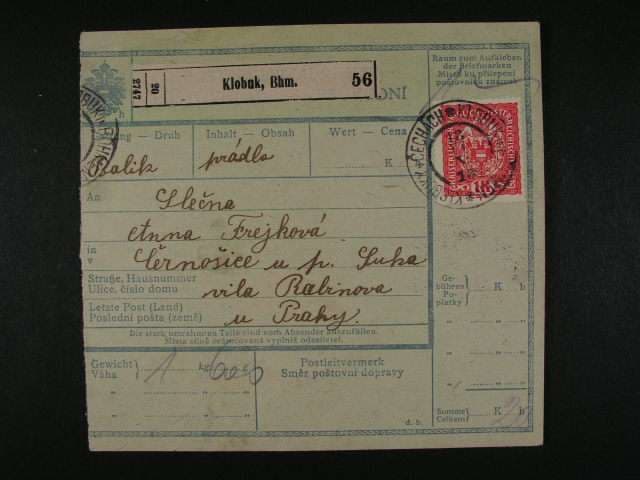 Raum zum Aufkleben
der Briefmarken
Místo ku přilepení
poštovních známek
20
2747
Klobuk, Bhm. 56
Druh Inhalt — Obsah Wert — Cena
Balik prádlo K
An Slečna
Anna Frejková
in
v Černošice u p. Suka
Straße, Hausnummer
Ulice, číslo domu vila Rabinova
Letzte Post (Land)
Poslední pošta (země) u Prahy.
Die stark umrahmten Teile sind vom Absender auszufüllen.
Místa silně orámovaná vyplniž odesílatel.
Ge-
bühren
Po-
platky
K h
Gewicht
Váha 1 kg 600 g
Postleitvermerk
Směr poštovní dopravy
Summe
Celkem K
d. b.